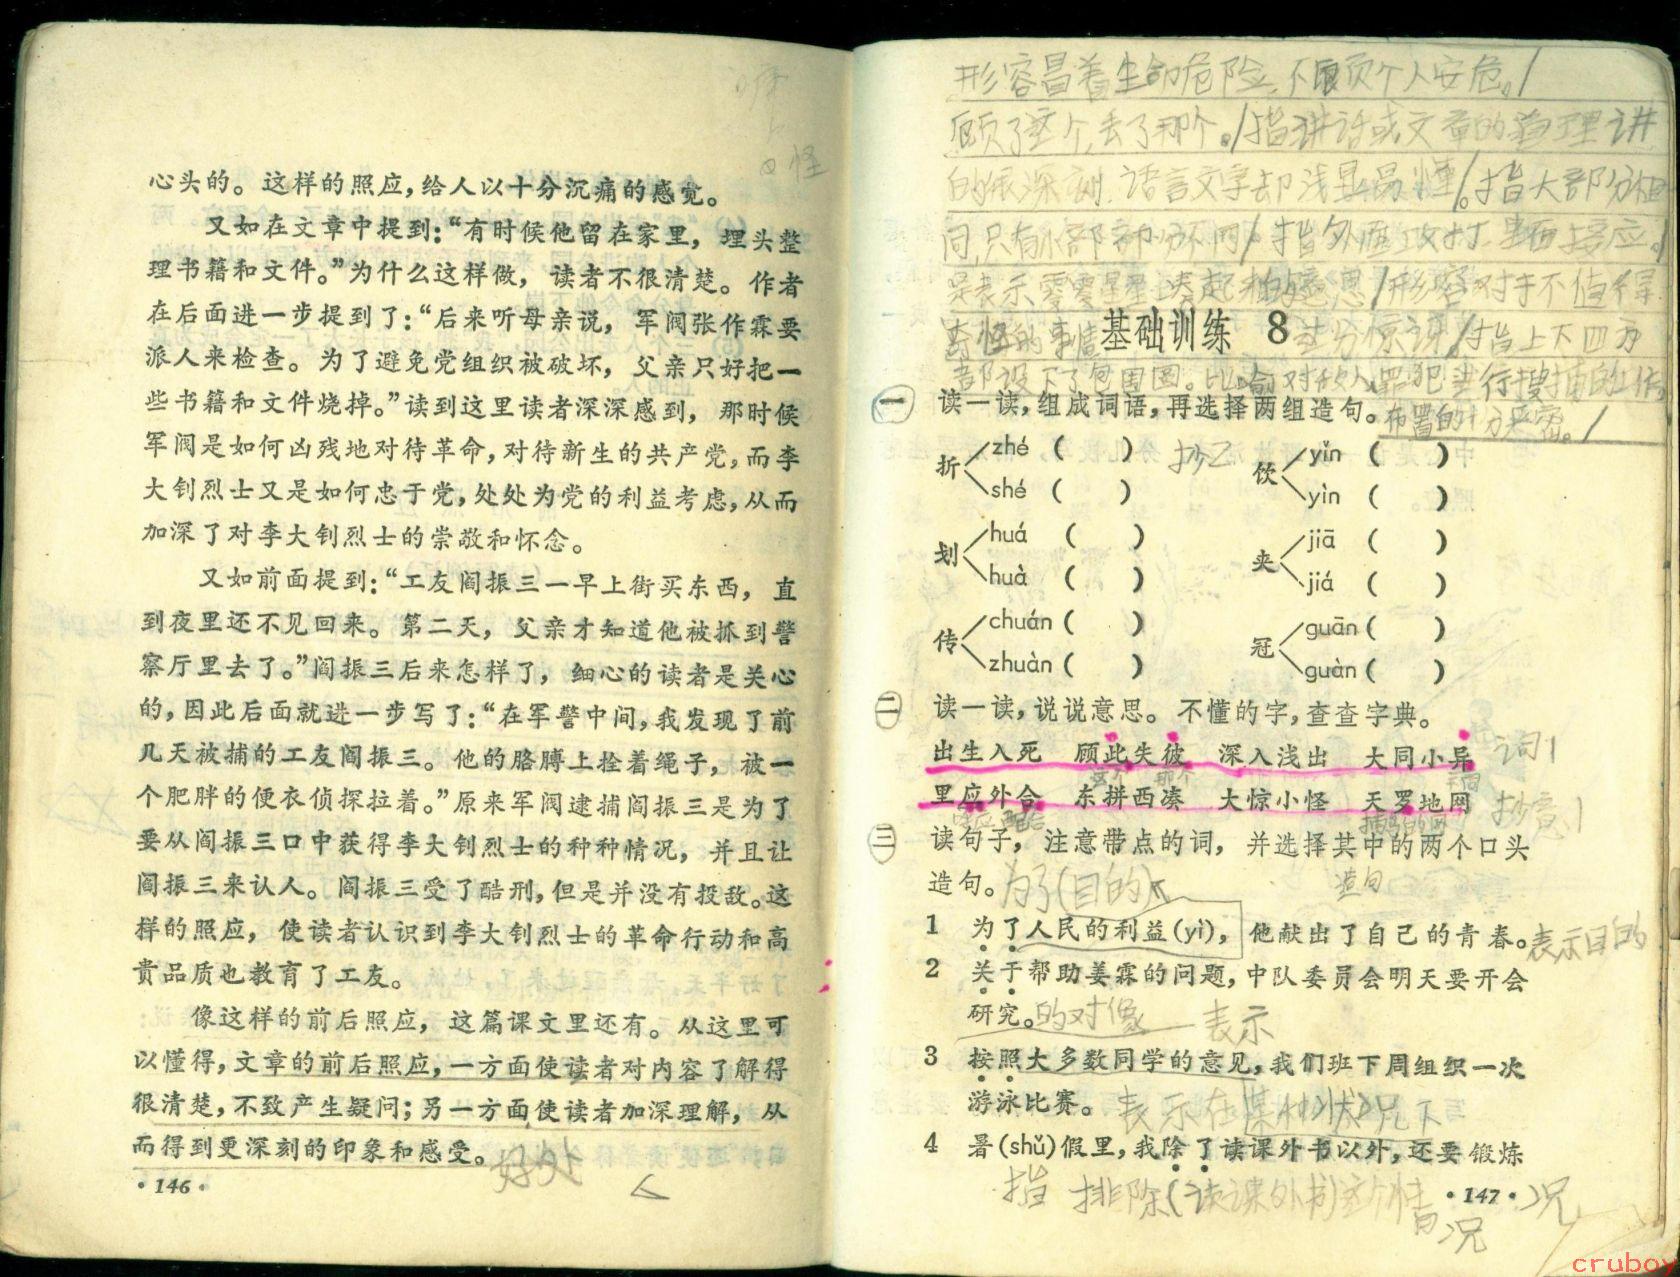 心头的。这样的照应，给人以十分沉痛的感觉。
又如在文章中提到：“有时候他留在家里，埋头整
理书籍和文件。”为什么这样做，读者不很清楚。作者
在后面进一步提到了：“后来听母亲说，军阀张作霖要
派人来检查。为了避免党组织被破坏，父亲只好把一
些书籍和文件烧掉。”读到这里读者深深感到，那时候
军阀是如何凶残地对待革命，对待新生的共产党，而李
大钊烈士又是如何忠于党，处处为党的利益考虑，从而
加深了对李大钊烈士的崇敬和怀念。
又如前面提到：“工友阎振三一早上街买东西，直
到夜里还不见回来。第二天，父亲才知道他被抓到警
察厅里去了。”阎振三后来怎样了，细心的读者是关心
的，因此后面就进一步写了：“在军警中间，我发现了前
几天被捕的工友阎振三。他的胳膊上拴着绳子，被一
个肥胖的便衣侦探拉着。”原来军阀逮捕阎振三是为了
要从阎振三口中获得李大钊烈士的种种情况，并且让
阎振三来认人。阎振三受了酷刑，但是并没有投敌。这
样的照应，使读者认识到李大钊烈士的革命行动和高
贵品质也教育了工友。
像这样的前后照应，这篇课文里还有。从这里可
以懂得，文章的前后照应，一方面使读者对内容了解得
很清楚，不致产生疑问；另一方面使读者加深理解，从
而得到更深刻的印象和感受。
好处
·146·
怪
形容冒着生命危险，不顾个人安危。/
顾了这个，丢了那个。/指讲话或文章的道理讲
的很深刻，语言文字却浅显易懂/。指大部分相
同，只有小部部分不同/。指外面攻打，里面接应。/
是表示零零星星凑起来的意思/形容对于不值得
奇怪的事情 十分惊讶。/指上下四方
都设下了包围圈。比喻对敌人、罪犯进行搜捕的工作，
布置的十分严密。/
基础训练 8
一 读一读，组成词语，再选择两组造句。
折 zhé ( ) 抄乙 饮 yǐn ( )
shé ( ) yìn ( )
划 huá ( ) 夹 jiā ( )
huà ( ) jiá ( )
传 chuán ( ) 冠 guān ( )
zhuàn ( ) guàn ( )
二 读一读，说说意思。不懂的字，查查字典。
出生入死 顾此失彼 深入浅出 大同小异 词1
这个 那个 不同
里应外合 东拼西凑 大惊小怪 天罗地网 抄意1
呼应 配合 捕鸟的网
三 读句子，注意带点的词，并选择其中的两个口头
造句。为了(目的) 造句
1 为了人民的利益(yì)，他献出了自己的青春。表示目的
2 关于帮助姜霖的问题，中队委员会明天要开会
研究。的对像 表示
3 按照大多数同学的意见，我们班下周组织一次
游泳比赛。表示在某种状况下
4 暑(shǔ)假里，我除了读课外书以外，还要锻炼
指 排除(读课外书)这个情况
·147·
况
cruboy